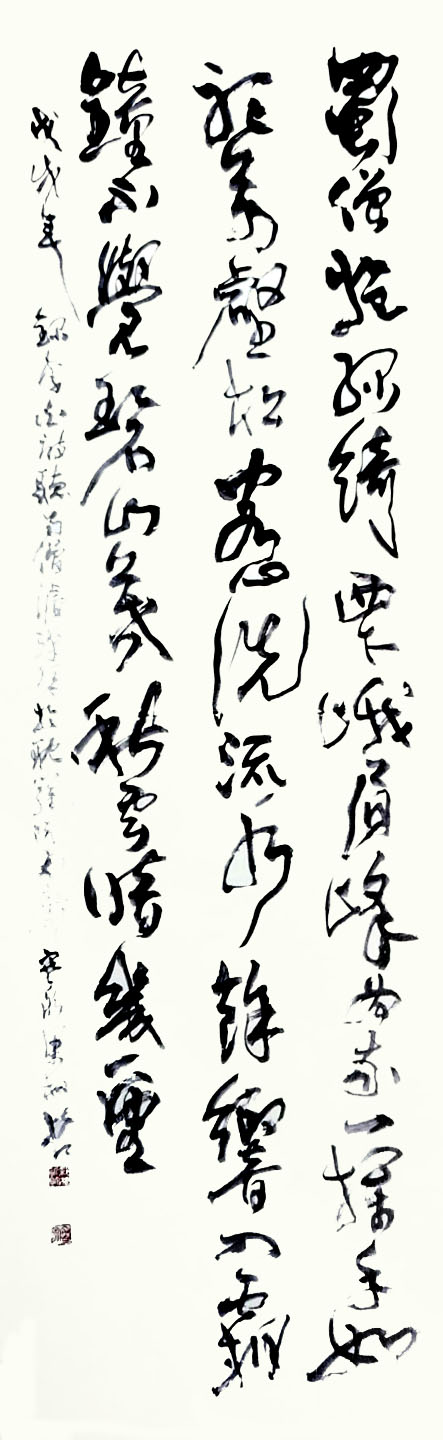 蜀僧抱綠綺西下峨眉峰為我一揮手如
聽萬壑松客心洗流水餘響入霜
鐘不覺碧山暮秋雲暗幾重
戊戌年 錄李白詩聽蜀僧濬彈琴於